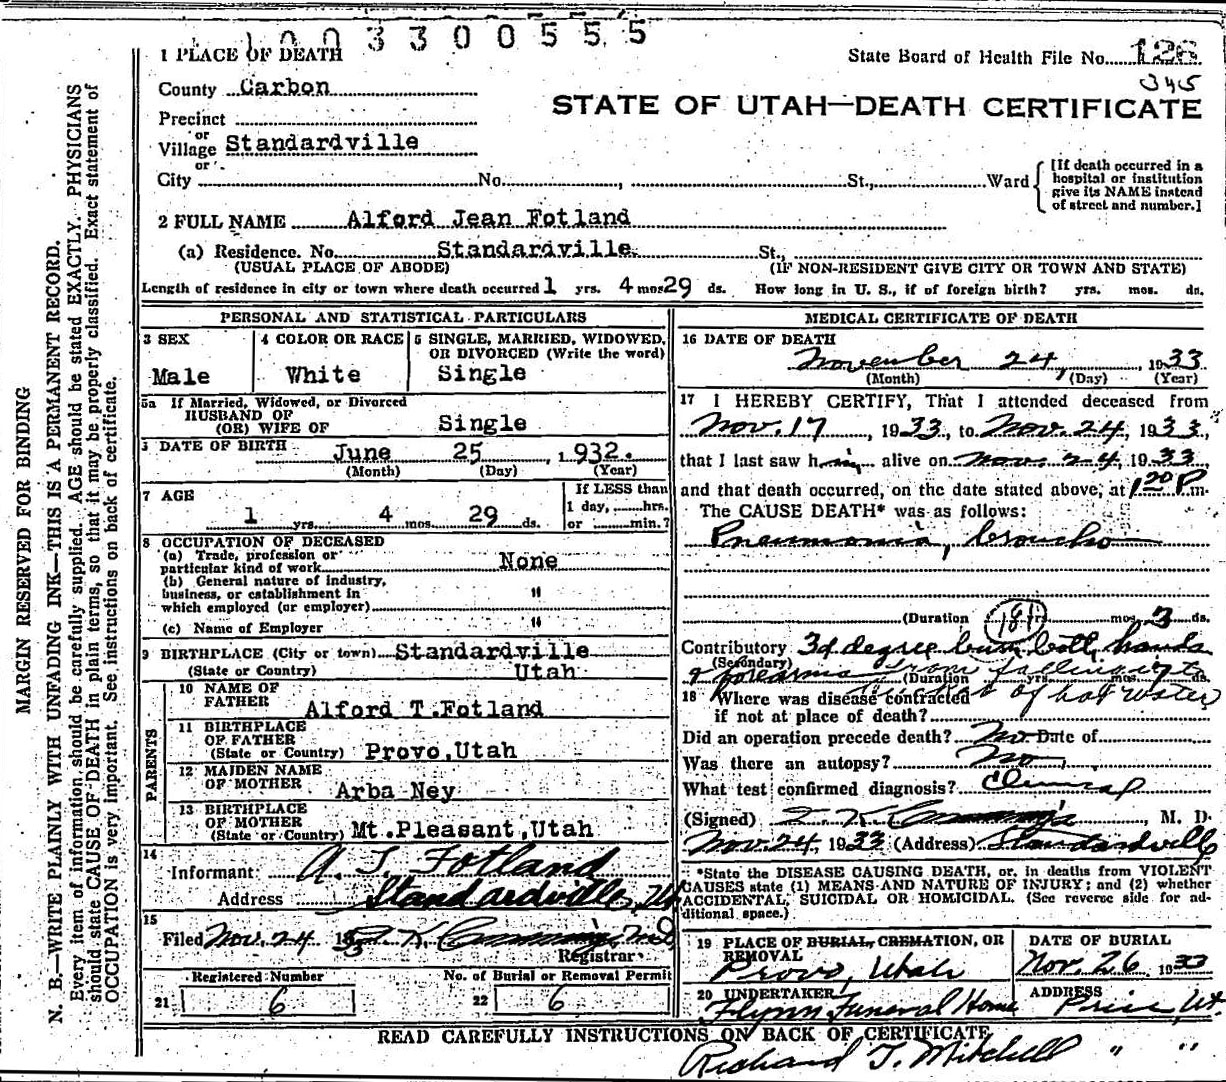 1003300555
1 PLACE OF DEATH
State Board of Health File No. 126
345
County Carbon
STATE OF UTAH—DEATH CERTIFICATE
Precinct
or
Village Standardville
or
City No. , St., Ward
[If death occurred in a
hospital or institution
give its NAME instead
of street and number.]
2 FULL NAME Alford Jean Fotland
(a) Residence. No. Standardville. St.,
(USUAL PLACE OF ABODE) (IF NON-RESIDENT GIVE CITY OR TOWN AND STATE)
Length of residence in city or town where death occurred 1 yrs. 4 mos 29 ds. How long in U. S., if of foreign birth? yrs. mos. ds.
PERSONAL AND STATISTICAL PARTICULARS
3 SEX
Male
4 COLOR OR RACE
White
5 SINGLE, MARRIED, WIDOWED,
OR DIVORCED (Write the word)
Single
5a If Married, Widowed, or Divorced
HUSBAND OF
(OR) WIFE OF Single
DATE OF BIRTH June 25 , 1932.
(Month) (Day) (Year)
7 AGE
1 yrs. 4 mos. 29 ds.
If LESS than
1 day, hrs.
or min.?
8 OCCUPATION OF DECEASED
(a) Trade, profession or
particular kind of work None
(b) General nature of industry,
business, or establishment in "
which employed (or employer)
(c) Name of Employer "
9 BIRTHPLACE (City or town) Standardville
(State or Country) Utah
PARENTS
10 NAME OF
FATHER Alford T. Fotland
11 BIRTHPLACE
OF FATHER
(State or Country) Provo, Utah
12 MAIDEN NAME
OF MOTHER Arba Ney
13 BIRTHPLACE
OF MOTHER
(State or Country) Mt. Pleasant, Utah
14
Informant A. T. Fotland
Address Standardville, Ut
15
Filed Nov. 24 1933 K. Cummings M.D
Registrar
Registered Number
21 6
No. of Burial or Removal Permit
22 6
MEDICAL CERTIFICATE OF DEATH
16 DATE OF DEATH
November 24, 1933
(Month) (Day) (Year)
17 I HEREBY CERTIFY, That I attended deceased from
Nov. 17, 1933, to Nov. 24, 1933,
that I last saw him alive on Nov. 24, 1933,
and that death occurred, on the date stated above, at 1 20 P m.
The CAUSE DEATH* was as follows:
Pneumonia, broncho
(Duration mos. 3 ds.
Contributory 3d degree burn both hands
(Secondary) & forearms from falling into
(Duration yrs. mos. ds.
of hot water
18 Where was disease contracted
if not at place of death?
Did an operation precede death? No Date of
Was there an autopsy? No
What test confirmed diagnosis? Clinical
(Signed) K. Cummings, M. D.
Nov 24, 1933 (Address) Standardville
*State the DISEASE CAUSING DEATH, or, in deaths from VIOLENT
CAUSES state (1) MEANS AND NATURE OF INJURY; and (2) whether
ACCIDENTAL, SUICIDAL OR HOMICIDAL. (See reverse side for ad-
ditional space.)
19 PLACE OF BURIAL, CREMATION, OR
REMOVAL
Provo, Utah
DATE OF BURIAL
Nov. 26 1933
20 UNDERTAKER
Flynn Funeral Home
ADDRESS
Price, Ut.
READ CAREFULLY INSTRUCTIONS ON BACK OF CERTIFICATE
Richard T. Mitchell " "
MARGIN RESERVED FOR BINDING
N. B.—WRITE PLAINLY WITH UNFADING INK—THIS IS A PERMANENT RECORD.
Every item of information should be carefully supplied. AGE should be stated EXACTLY. PHYSICIANS
should state CAUSE OF DEATH in plain terms, so that it may be properly classified. Exact statement of
OCCUPATION is very important. See instructions on back of certificate.